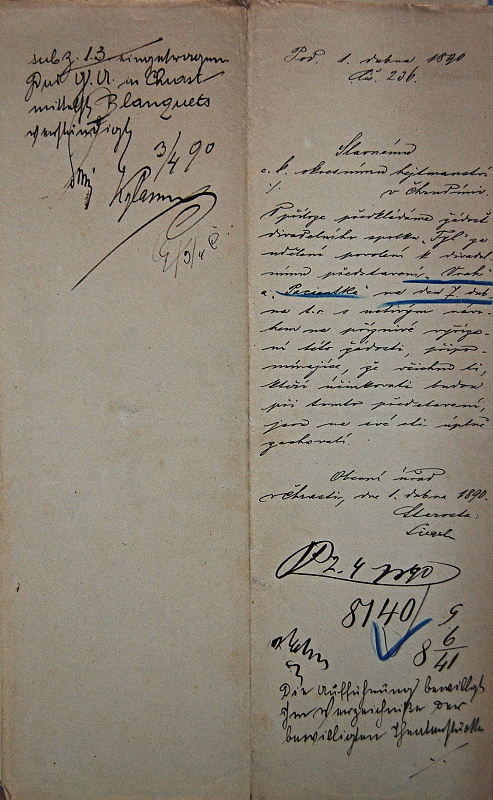 sub z. 13 eingetragen
Das G. A. in Chrast
mittelst Blanquets
verständigt
3/4 90
Pod. 1. dubna 1890
Čís. 236.
Slavnému
c. k. okresnímu hejtmanství
v Chrudimi.
V příloze předkládáme žádost
divadelního spolku "Tyl" za
udělení povolení k divadel
nímu představení "Vrah"
a "Pacientka" na den 7. dub
na t. r. s uctivým návr-
hem na příznivé vyříze-
ní této žádosti, připo-
mínajíce, že všichni ti,
kteří účinkovati budou
při tomto představení,
jsou na své cti úplně
zachovalí.
Obecní úřad
v Chrasti, dne 1. dubna 1890.
Starosta:
P 2. 4 1890
8140
8 6/41
Die Aufführung bewilligt
Im Verzeichniße der
bewilligten Theaterstücke